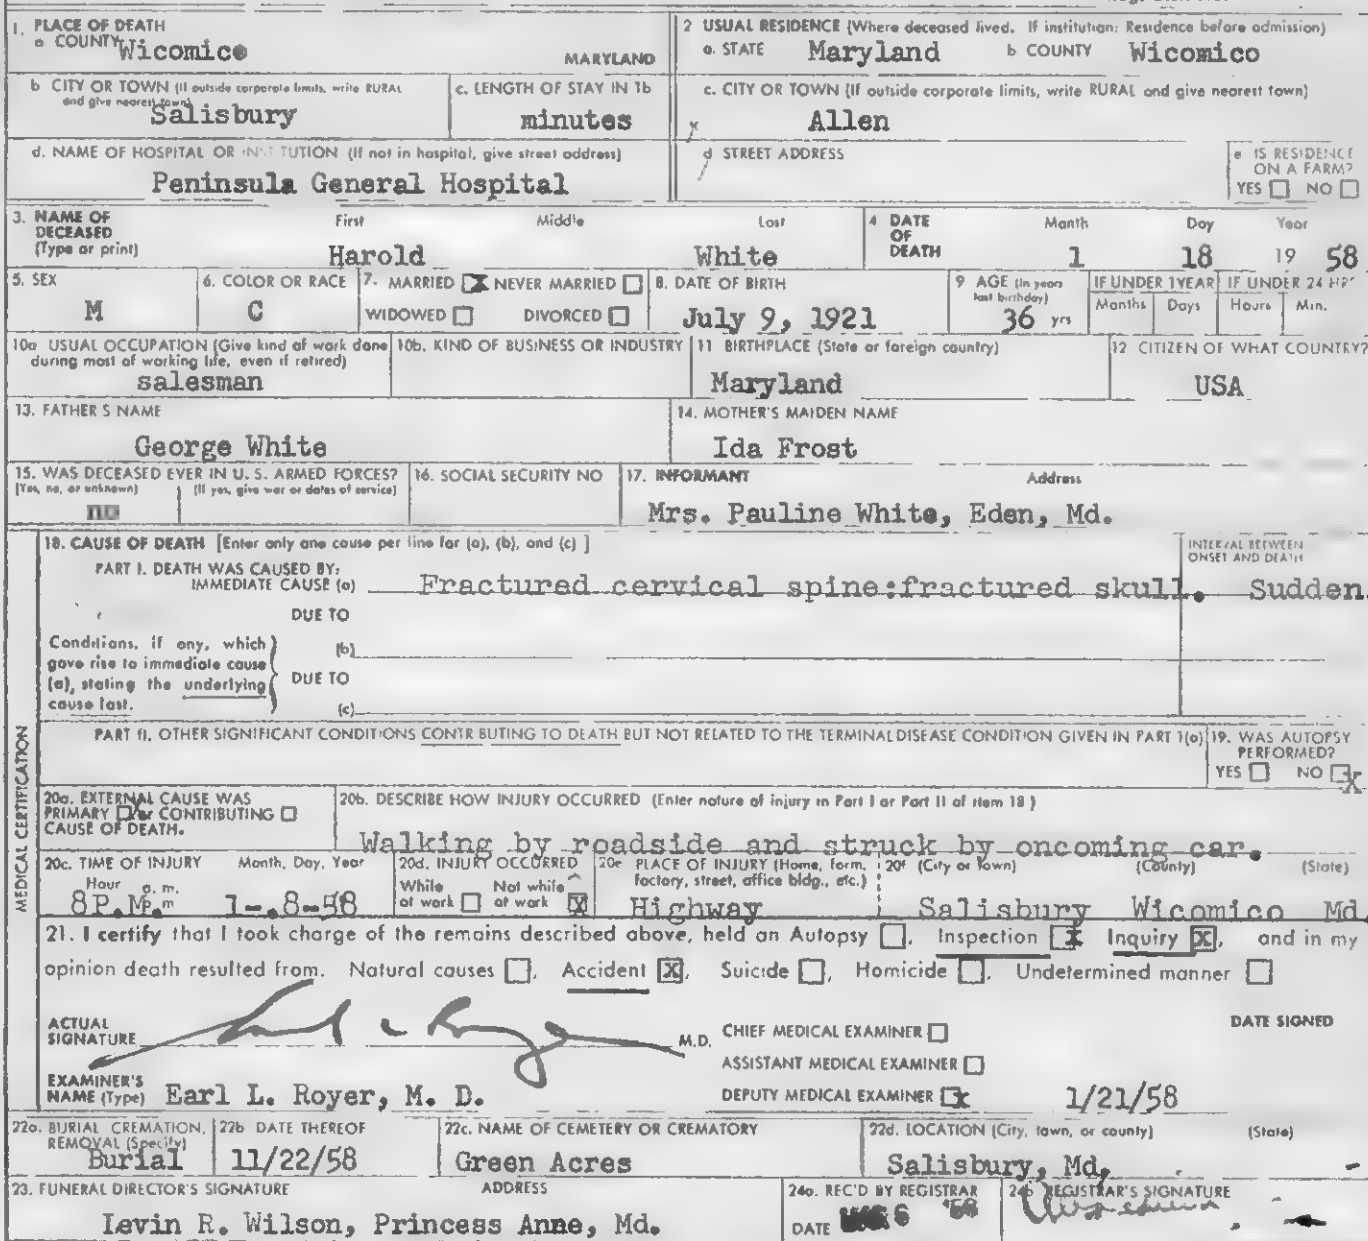 1. PLACE OF DEATH
a. COUNTY Wicomico MARYLAND
2 USUAL RESIDENCE (Where deceased lived. If institution: Residence before admission)
a. STATE Maryland b. COUNTY Wicomico
b CITY OR TOWN (If outside corporate limits, write RURAL and give nearest town)
Salisbury
c. LENGTH OF STAY IN 1b
minutes
c. CITY OR TOWN (If outside corporate limits, write RURAL and give nearest town)
Allen
d. NAME OF HOSPITAL OR INSTITUTION (If not in hospital, give street address)
Peninsula General Hospital
d STREET ADDRESS
e IS RESIDENCE
ON A FARM?
YES NO
3. NAME OF
DECEASED
(Type or print)
First Middle Last
Harold White
4 DATE
OF
DEATH
Month Day Year
1 18 19 58
5. SEX
M
6. COLOR OR RACE
C
7. MARRIED X NEVER MARRIED
WIDOWED DIVORCED
8. DATE OF BIRTH
July 9, 1921
9 AGE (In years
last birthday)
36 yrs
IF UNDER 1 YEAR
Months Days
IF UNDER 24 HRS
Hours Min.
10a USUAL OCCUPATION (Give kind of work done
during most of working life, even if retired)
salesman
10b. KIND OF BUSINESS OR INDUSTRY
11 BIRTHPLACE (State or foreign country)
Maryland
12 CITIZEN OF WHAT COUNTRY?
USA
13. FATHER'S NAME
George White
14. MOTHER'S MAIDEN NAME
Ida Frost
15. WAS DECEASED EVER IN U. S. ARMED FORCES?
(Yes, no, or unknown) (If yes, give war or dates of service)
no
16. SOCIAL SECURITY NO
17. INFORMANT Address
Mrs. Pauline White, Eden, Md.
MEDICAL CERTIFICATION
18. CAUSE OF DEATH [Enter only one cause per line for (a), (b), and (c) ]
INTERVAL BETWEEN
ONSET AND DEATH
PART I. DEATH WAS CAUSED BY:
IMMEDIATE CAUSE (a) Fractured cervical spine:fractured skull. Sudden.
DUE TO
Conditions, if any, which
gave rise to immediate cause
(a), stating the underlying
cause last.
(b)
DUE TO
(c)
PART II. OTHER SIGNIFICANT CONDITIONS CONTRIBUTING TO DEATH BUT NOT RELATED TO THE TERMINAL DISEASE CONDITION GIVEN IN PART 1(a)
19. WAS AUTOPSY
PERFORMED?
YES NO X
20a. EXTERNAL CAUSE WAS
PRIMARY or CONTRIBUTING
CAUSE OF DEATH.
20b. DESCRIBE HOW INJURY OCCURRED (Enter nature of injury in Part I or Part II of item 18)
Walking by roadside and struck by oncoming car.
20c. TIME OF INJURY Month, Day, Year
Hour a. m.
8P.M. m 1-.8-58
20d. INJURY OCCURRED
While Not while
at work at work X
20e PLACE OF INJURY (Home, farm,
factory, street, office bldg., etc.)
Highway
20f (City or town) (County) (State)
Salisbury Wicomico Md.
21. I certify that I took charge of the remains described above, held an Autopsy , Inspection X Inquiry X, and in my
opinion death resulted from. Natural causes , Accident X, Suicide , Homicide , Undetermined manner
ACTUAL
SIGNATURE M.D.
CHIEF MEDICAL EXAMINER
ASSISTANT MEDICAL EXAMINER
DEPUTY MEDICAL EXAMINER x
DATE SIGNED
1/21/58
EXAMINER'S
NAME (Type) Earl L. Royer, M. D.
22a. BURIAL CREMATION,
REMOVAL (Specify)
Burial
22b DATE THEREOF
11/22/58
22c. NAME OF CEMETERY OR CREMATORY
Green Acres
22d. LOCATION (City, town, or county) (State)
Salisbury, Md,
23. FUNERAL DIRECTOR'S SIGNATURE ADDRESS
Levin R. Wilson, Princess Anne, Md.
24a. REC'D BY REGISTRAR
DATE 6 '58
24b REGISTRAR'S SIGNATURE